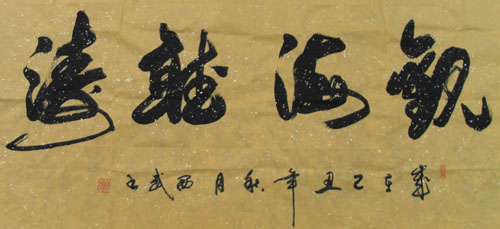 觀海聽濤
歲在己丑年秋月西武书